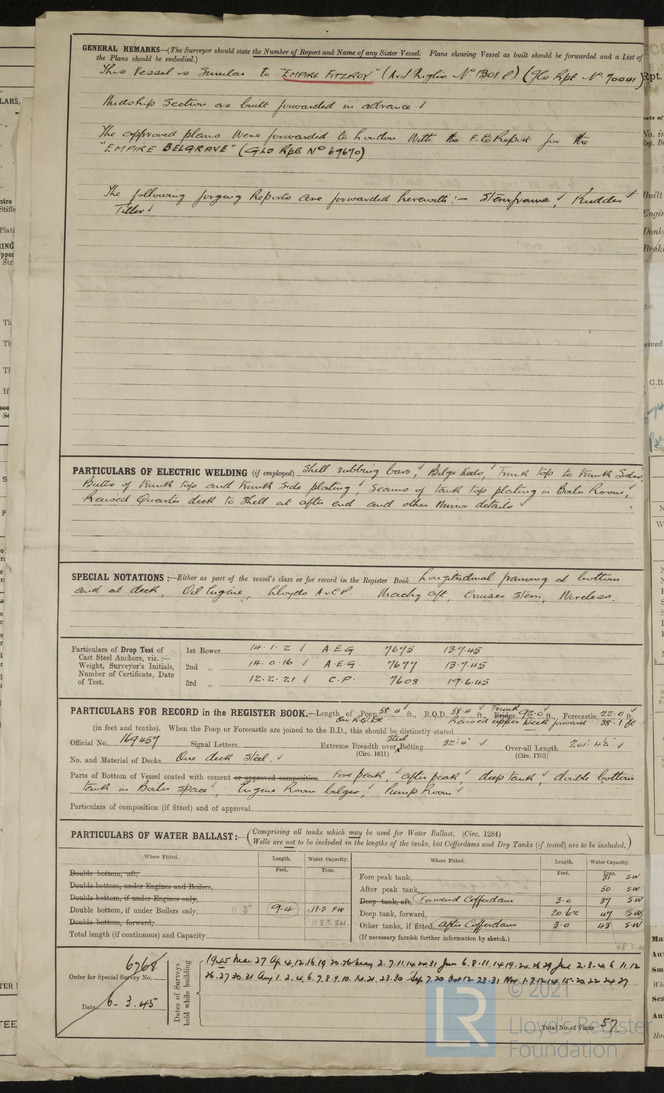 GENERAL REMARKS—(The Surveyor should state the Number of Report and Name of any Sister Vessel. Plans showing Vessel as built should be forwarded and a List of
the Plans should be embodied.)
This Vessel is Similar to "EMPIRE FITZROY" (Gls Rpt No 70041)
Midship Section as built forwarded in advance
The approved plans were forwarded to London with the F.E. Report for the
"EMPIRE BELGRAVE" (Gls Rpt No 69670)
The following forging Reports are forwarded herewith:- Sternframe, Rudder
Tiller
PARTICULARS OF ELECTRIC WELDING (if employed) Shell rubbing bars, Bilge keels, Trunk top to trunk sides,
Butts of trunk top and trunk side plating, Seams of tank top plating in Boiler Room,
Raised Quarter deck to shell at after end and other minor details
SPECIAL NOTATIONS:—Either as part of the vessel's class or for record in the Register Book Longitudinal framing at bottom
and at deck, Oil Engine, Lloyds A & CP Machy aft, Cruiser Stern, Wireless.
Particulars of Drop Test of
Cast Steel Anchors, viz.:—
Weight, Surveyor's Initials,
Number of Certificate, Date
of Test.
1st Bower 14.1.2 A.E.G 7675 13.7.45
2nd " 14.0.16 A.E.G 7677 13.7.45
3rd " 12.2.21 C.P. 7608 19.6.45
PARTICULARS FOR RECORD in the REGISTER BOOK.—Length of Poop 58.4 ft., R.Q.D. 58.4 ft., Trunk Bridge 92.0 ft., Forecastle 22.0 ft.
(in feet and tenths). When the Poop or Forecastle are joined to the B.D., this should be distinctly stated Raised upper Deck forward 38.1 ft
Official No. 169457 Signal Letters Extreme Breadth over Belting 32.4 Over-all Length 201.4½
(Circ. 1611) (Circ. 1702)
No. and Material of Decks One deck Steel.
Parts of Bottom of Vessel coated with cement or approved composition Fore peak, after peak, deep tank, double bottom
tank in Boiler space, Engine Room bilges, Pump Room
Particulars of composition (if fitted) and of approval
PARTICULARS OF WATER BALLAST:—(Comprising all tanks which may be used for Water Ballast. (Circ. 1284)
Wells are not to be included in the lengths of the tanks, but Cofferdams and Dry Tanks (if tested) are to be included.)
Where Fitted. Length. Water Capacity. Where Fitted. Length. Water Capacity.
Feet. Tons. Feet. Tons.
Double bottom, aft,
Double bottom, under Engines and Boilers,
Double bottom, if under Engines only,
Double bottom, if under Boilers only, 9.4 11.5 FW
Double bottom, forward,
Total length (if continuous) and Capacity
Fore peak tank, 31 SW
After peak tank, 50 SW
Deep tank, aft, Forward Cofferdam 3.0 37 SW
Deep tank, forward, 20.62 47 SW
Other tanks, if fitted, After Cofferdam 3.0 43 SW
(If necessary furnish further information by sketch.)
Order for Special Survey No. 6768
Date 6.3.45
Dates of Surveys
held while building
Total No. of Visits 57
© 2021
LR
Lloyd's Register
Foundation